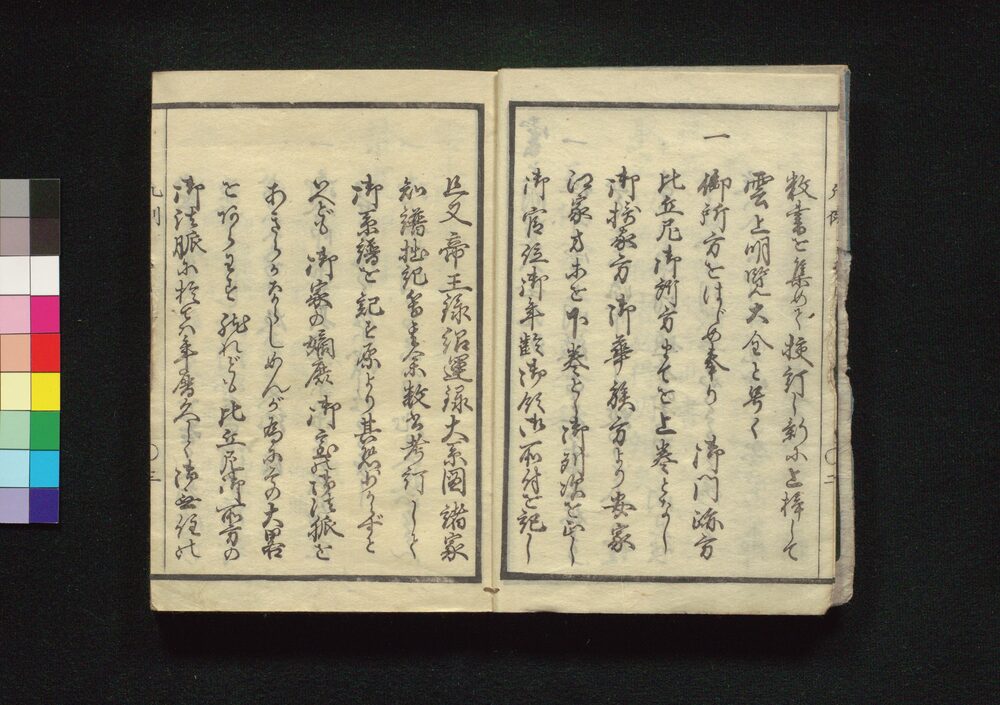 数書を集めて挍訂し新に上梓して
雲上明覧大全と号く
一
御所方をはじめ奉り 御門跡方
比丘尼御所方までを上巻となし
御摂家方 御華族方より安家
江家方等を下巻とし御列次を正し
御官位御年齢御領御所付を記し
且又帝王録紹運録大系図諸家
知譜拙記等其余数書考訂して
御系譜を記す原より其恐少からずと
いへども 御家の嫡庶 御寺の御法脈を
あきらかならしめんが為にその大略
をあらはす 然れども比丘尼御所方の
御法脈に於ては年暦久しく御無住の
凡例
凡例